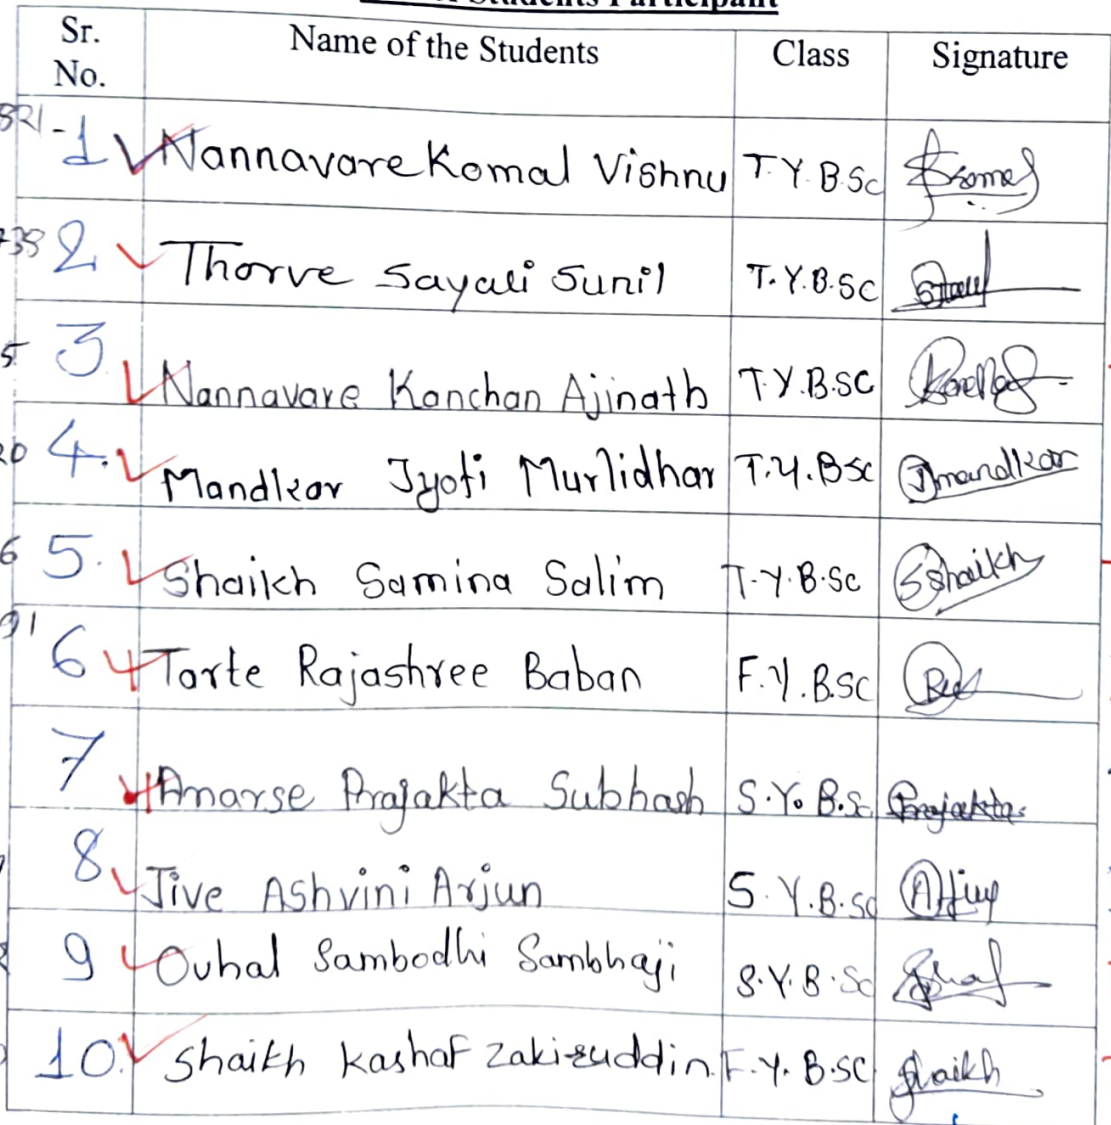 Students Participant
Sr. No. Name of the Students Class Signature
821 - 1 Nannavare Komal Vishnu T.Y.B.Sc Komal
738 2 Thorve Sayali Sunil T.Y.B.Sc
5 3 Nannavare Kanchan Ajinath T.Y.B.SC
20 4. Mandkar Jyoti Murlidhar T.Y.BSc Jmandkar
6 5. Shaikh Samina Salim T.Y.B.Sc SShaikh
91 6 Tarte Rajashree Baban F.Y.B.SC
7 Anarse Prajakta Subhash S.Y.B.Sc Prajakta
8 Jive Ashvini Arjun S.Y.B.Sc
9 Ovhal Sambodhi Sambhaji S.Y.B.Sc
10. Shaikh Kashaf Zakizuddin F.Y.B.SC Shaikh